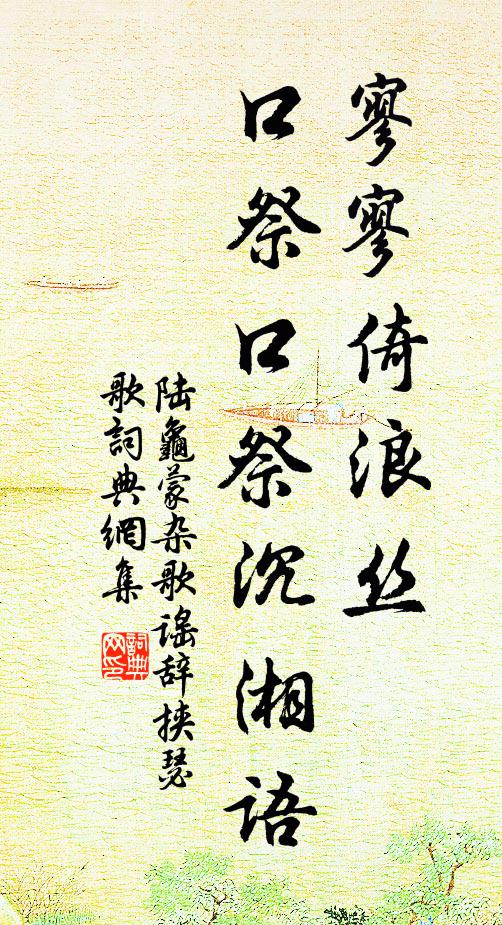 寥寥倚浪丝
口祭口祭沉湘语
陆龜蒙杂歌谣辞挟瑟
歌詞典網集
詞典网印